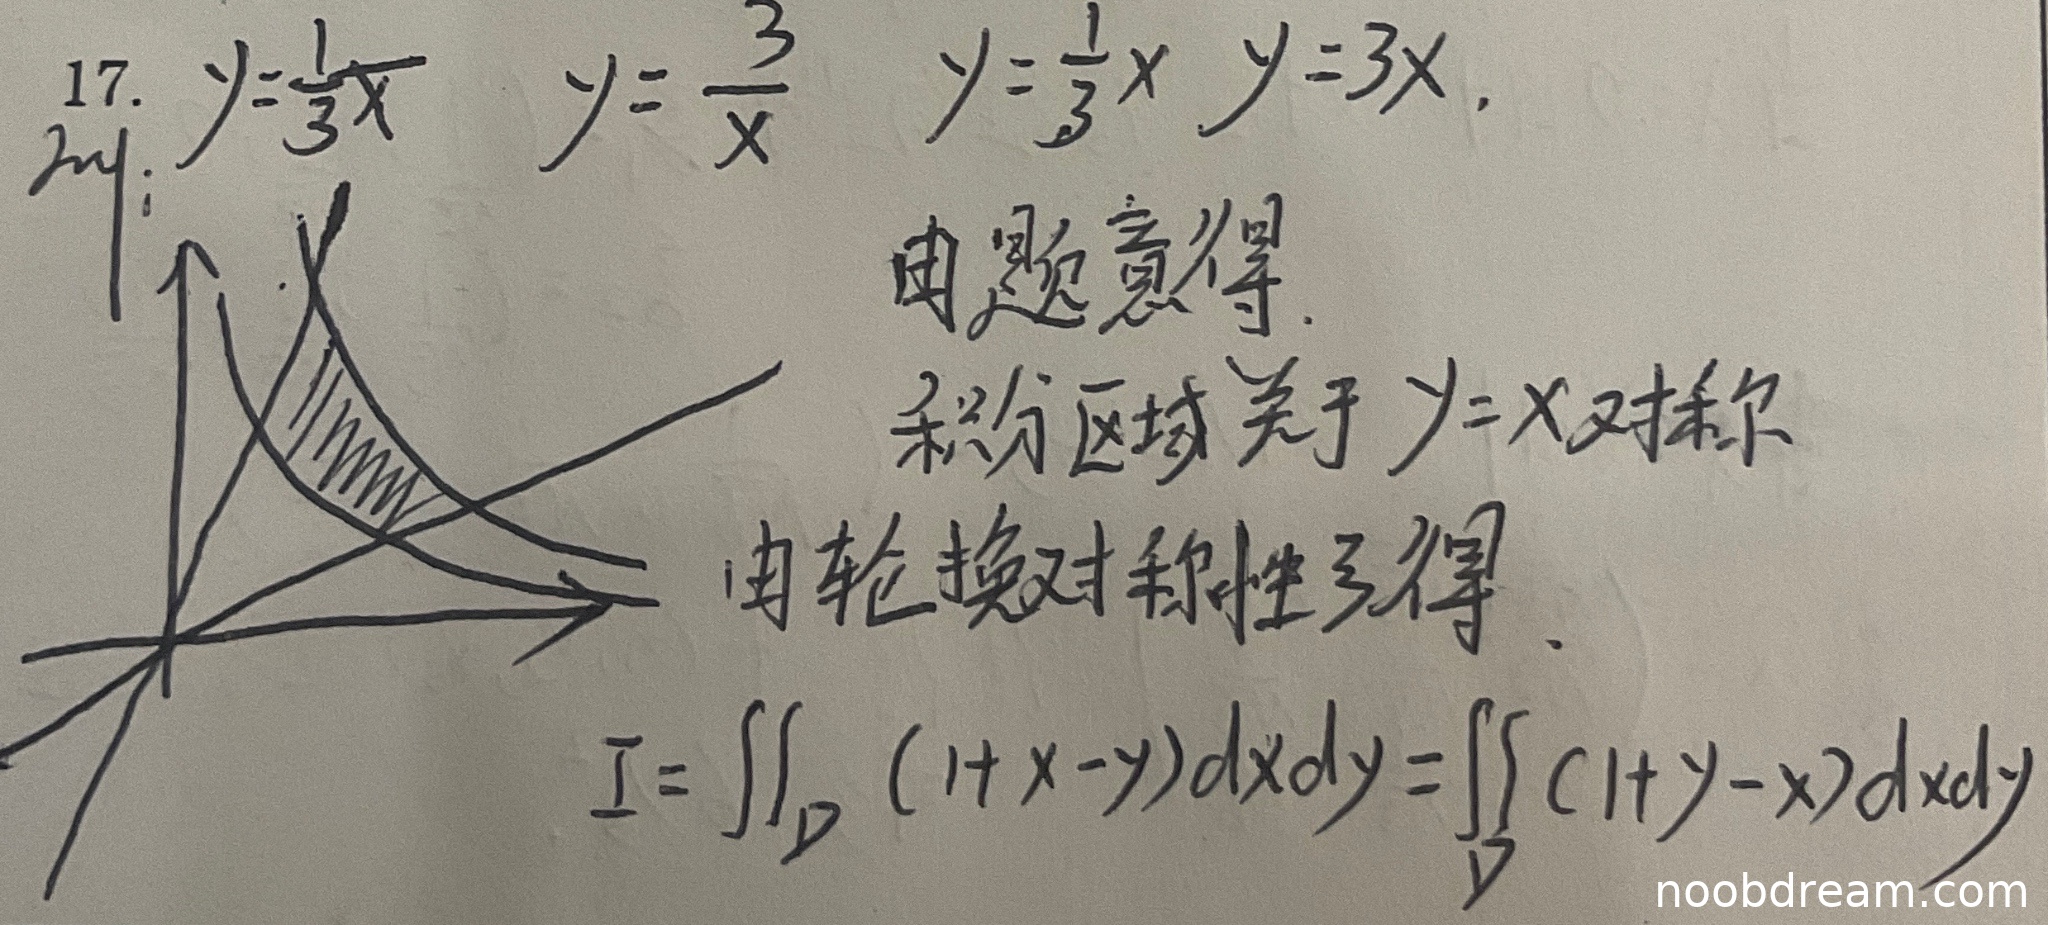 17. y=1/3x y=3/x y=1/3 x y=3x.
由题意得.
积分区域关于 y=x对称
由轮换对称性可得.
I=∬_D (1+x-y)dxdy=∬_D (1+y-x)dxdy
noobdream.com